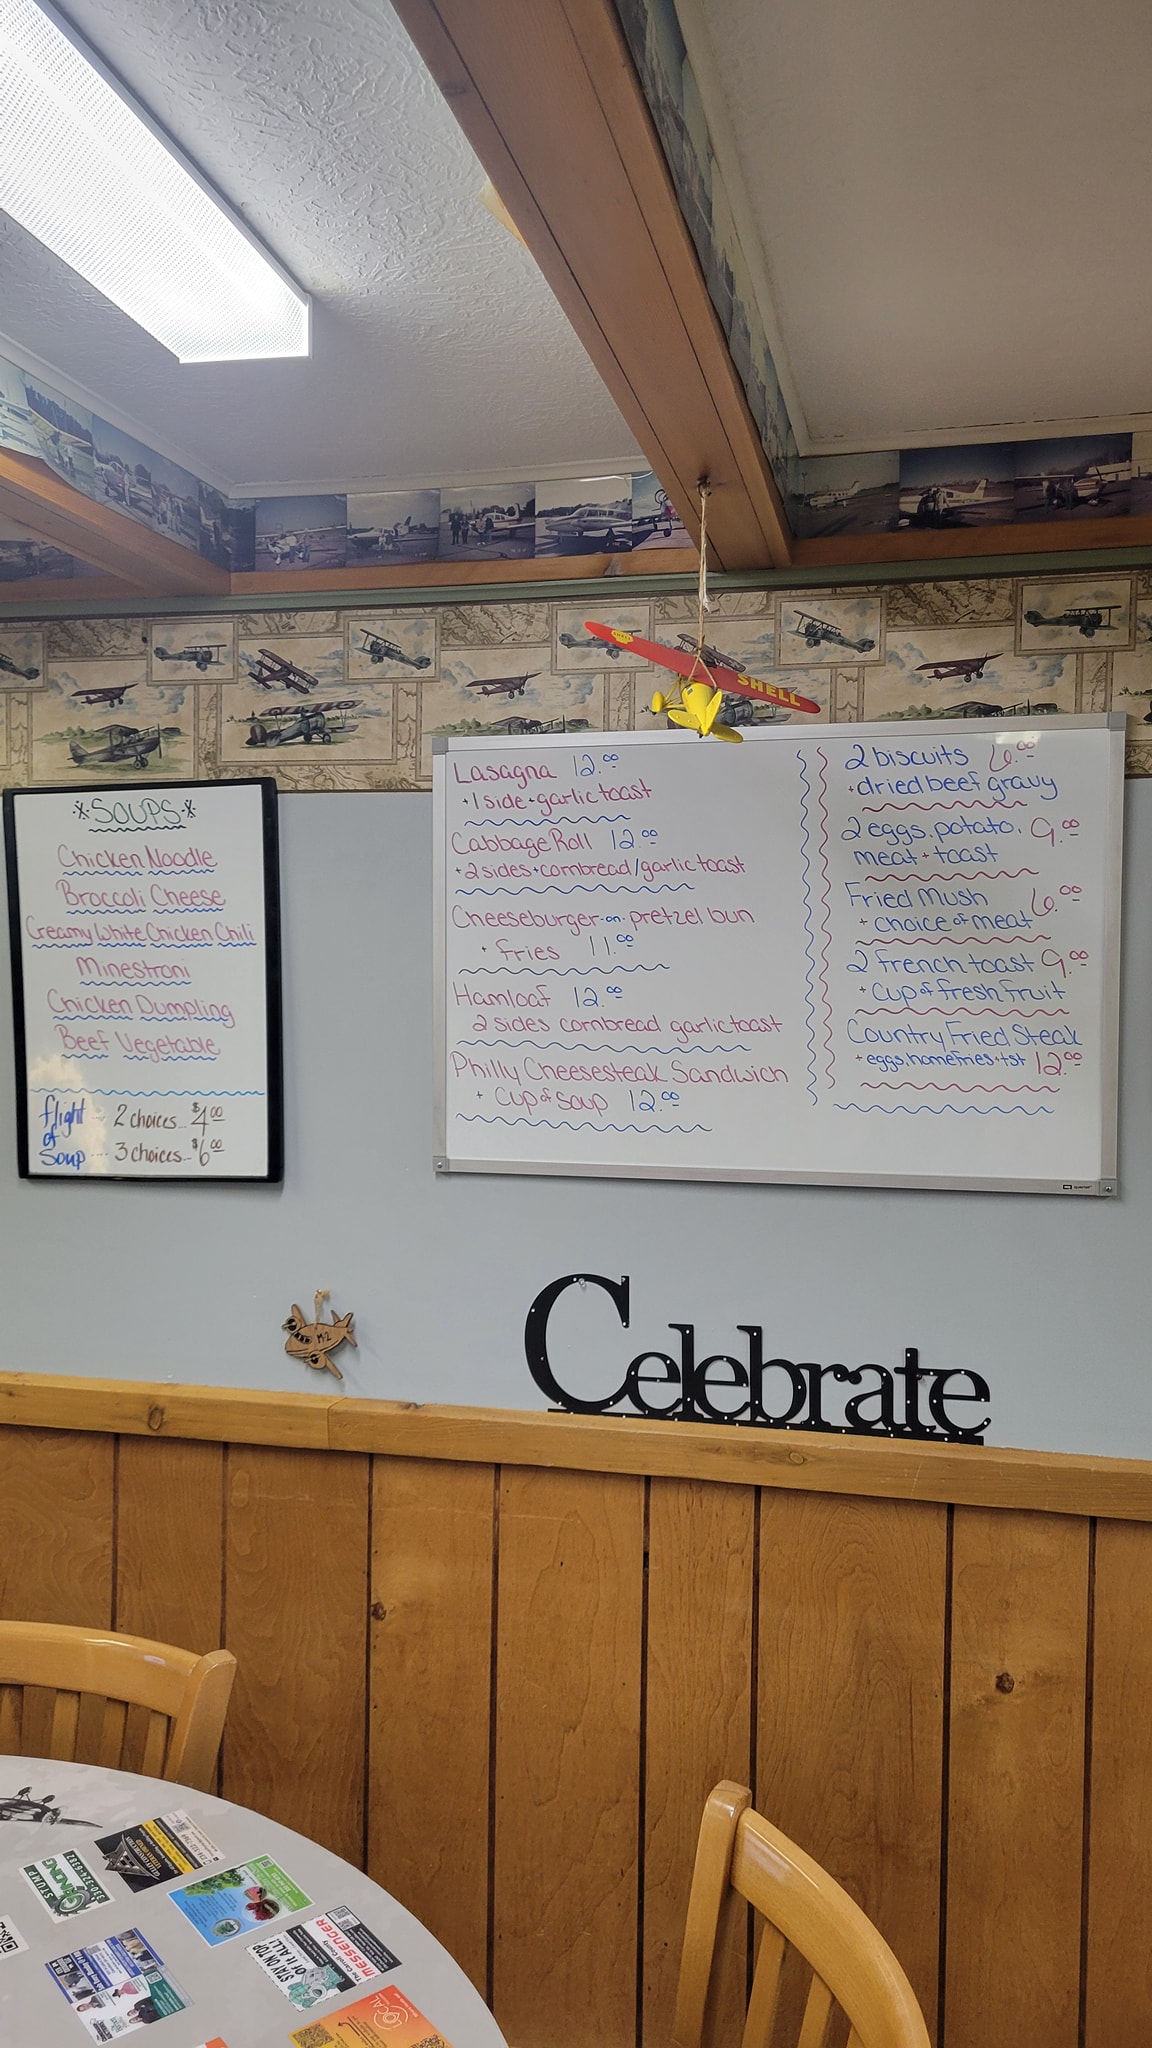 *SOUPS*
Chicken Noodle
Broccoli Cheese
Creamy White Chicken Chili
Minestroni
Chicken Dumpling
Beef Vegetable
flight of Soup
2 choices... $4.00
3 choices... $6.00
SHELL
Lasagna 12.00
+ 1 side + garlic toast
Cabbage Roll 12.00
+ 2 sides + cornbread/garlic toast
Cheeseburger-on-pretzel bun
+ fries 11.00
Hamloaf 12.00
2 sides cornbread garlic toast
Philly Cheesesteak Sandwich
+ Cup of soup 12.00
2 biscuits 6.00
+ dried beef gravy
2 eggs, potato, 9.00
meat + toast
Fried Mush 6.00
+ choice of meat
2 french toast 9.00
+ Cup of fresh fruit
Country Fried Steak
+ eggs, homefries + tst 12.00
M-2
Celebrate
STUMP
330-324-6187
STAY ON TOP
OF IT ALL!
The Carroll County
MESSENGER
LOCAL